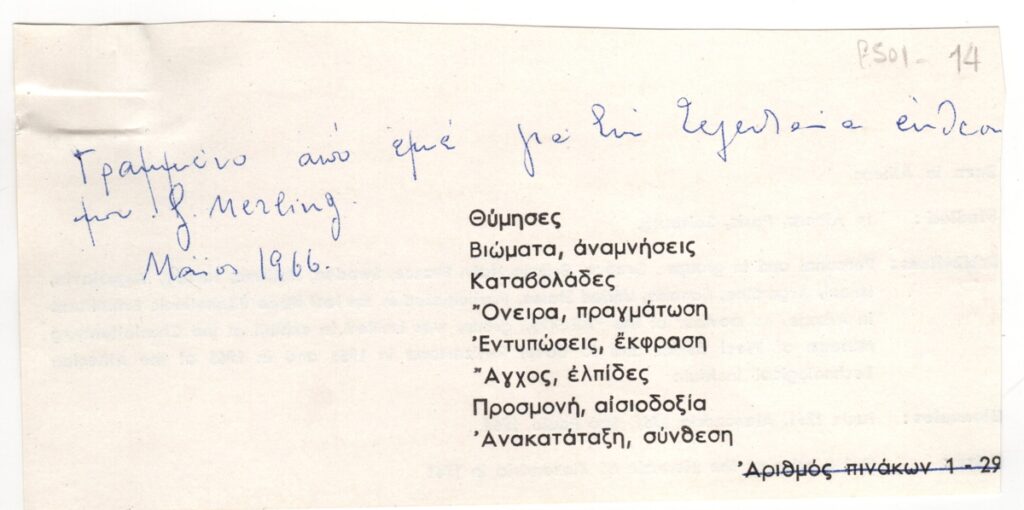 P.501 - 14
Γραμμένο από εμέ για την τελευταία έκθεση
μου! G. Merling.
Μάιος 1966.
Θύμησες
Βιώματα, ἀναμνήσεις
Καταβολάδες
Ὄνειρα, πραγμάτωση
Ἐντυπώσεις, ἔκφραση
Ἄγχος, ἐλπίδες
Προσμονή, αἰσιοδοξία
Ἀνακατάταξη, σύνθεση
Ἀριθμός πινάκων 1 - 29